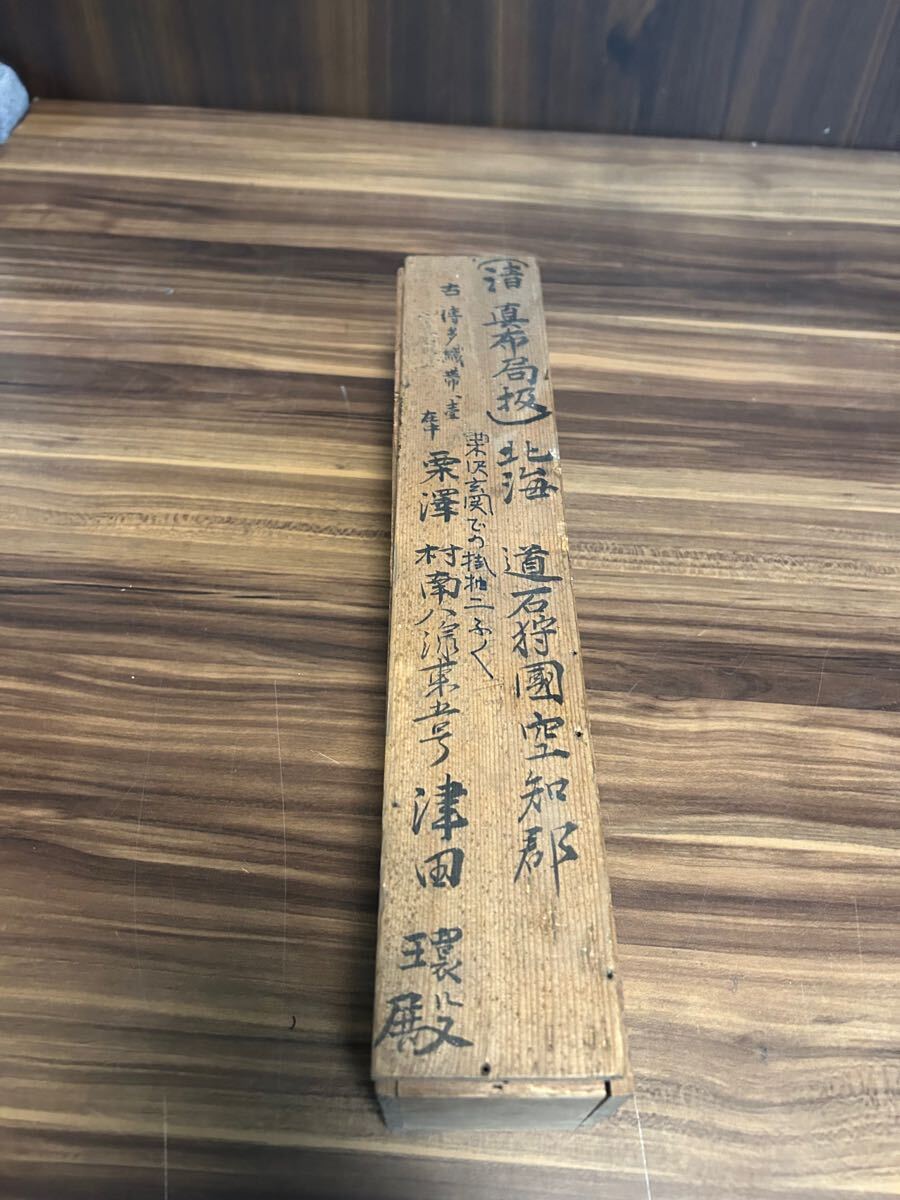 (清真布局扱)北海道石狩國空知郡
栗沢玄関での掛抽二ふく
古博多織帯、壹
在中
栗澤村南八線東五号津田環殿